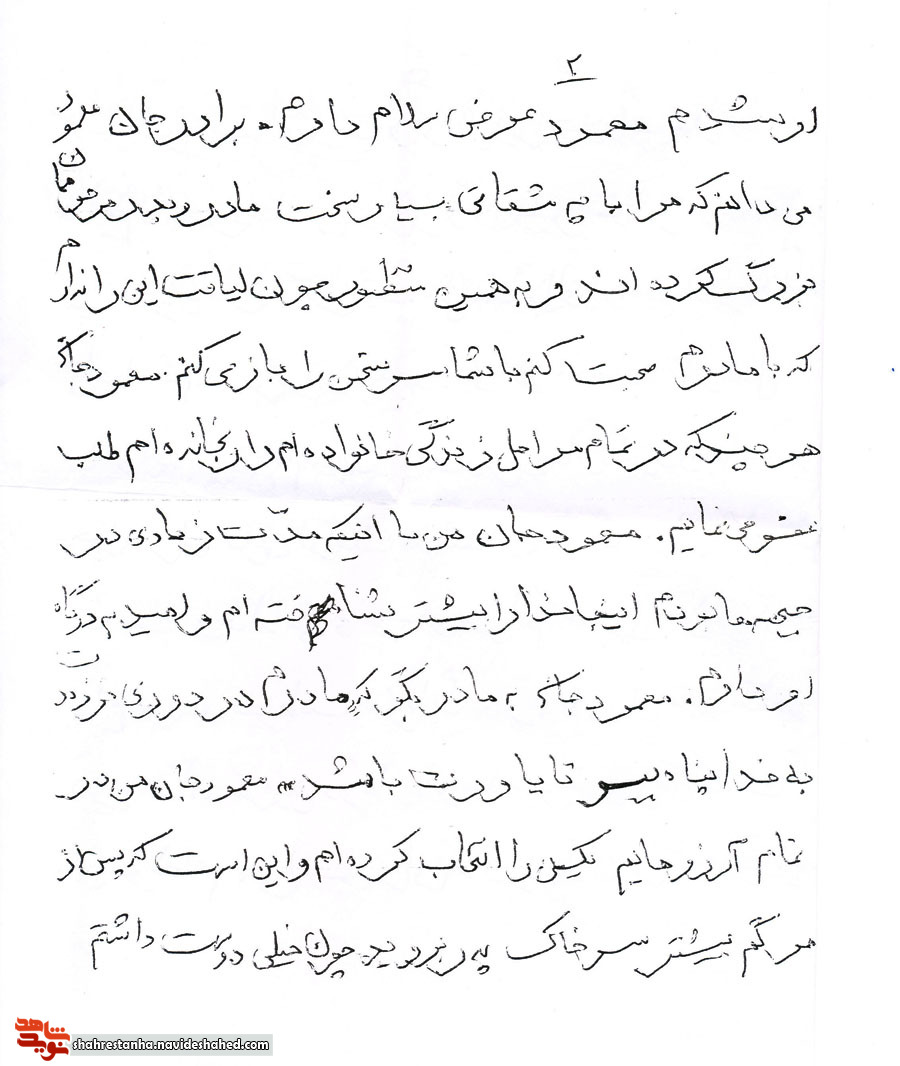 ۲
ارشدم محمود عرض سلام دارم. برادر جان محمود
می دانم که مرا با چه مشقاتی بسیار سخت مادر و پدر مرحومان
بزرگ کرده اند و به همین منظور چون لیاقت این را ندارم
که با مادرم صحبت کنم با شما سر سخن را باز می کنم. محمود جان
هر چیزیکه در تمام مراحل زندگی خانواده ام را رنجانده ام طلب
عفو می نمایم. محمود جان من با اینکه مدّت زیادی در
جبهه ها نبودم اینجا خدا را بیشتر شناخته ام و امید به درگاه
او دارم. محمود جان به مادر بگو که مادرم در دوری فرزندت
به خدا پناه ببر تا یاورت باشد محمود جان من در
تمام آرزوهایم یکیش را انتخاب کرده ام و این است که پس از
مرگم بیشتر سر خاک پدر بروید چون خیلی دوست داشتم
شاهد
نوید
shahrestanha.navideshahed.com